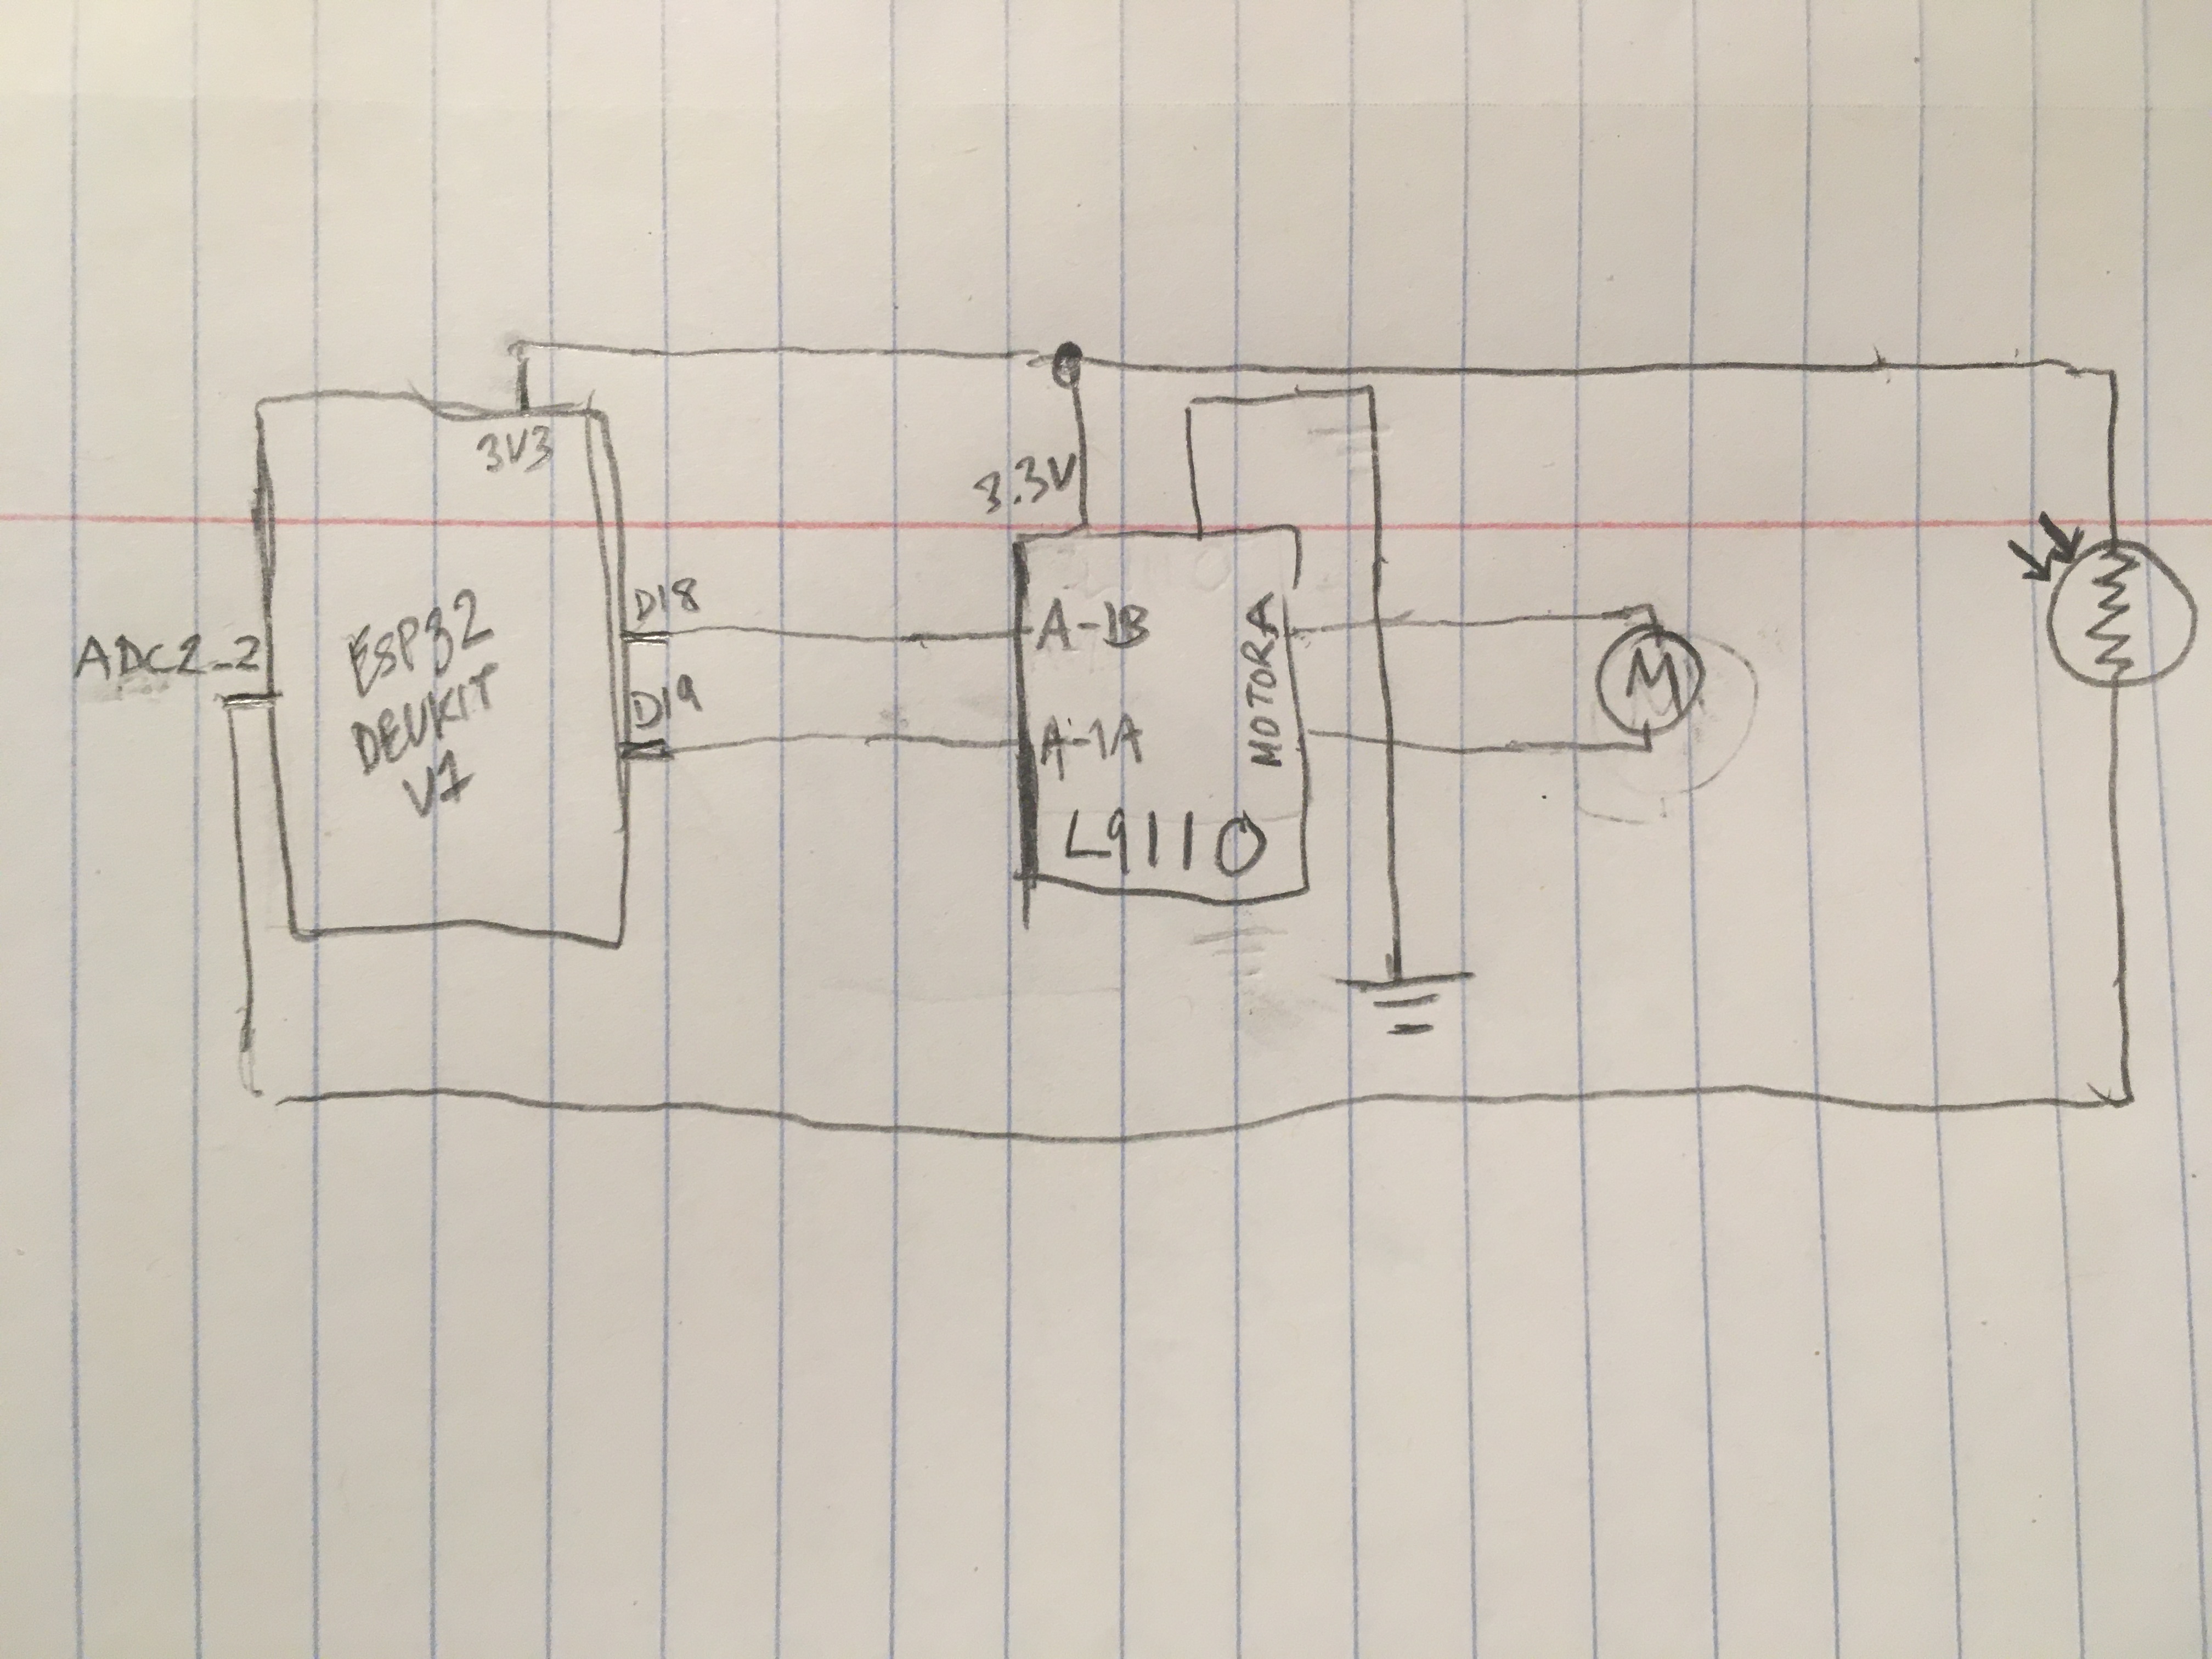 3V3
3.3V
D18
ADC2-2
ESP32
DEVKIT
V1
D19
A-1B
A-1A
MOTORA
L9110
M